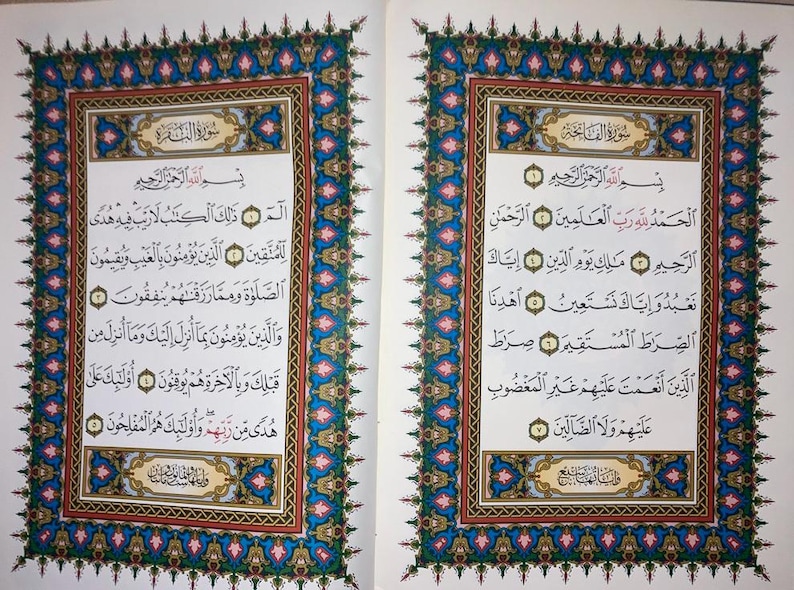 سورة الفاتحة
بِسْمِ ٱللَّهِ ٱلرَّحْمَٰنِ ٱلرَّحِيمِ ١
ٱلْحَمْدُ لِلَّهِ رَبِّ ٱلْعَٰلَمِينَ ٢ ٱلرَّحْمَٰنِ
ٱلرَّحِيمِ ٣ مَٰلِكِ يَوْمِ ٱلدِّينِ ٤ إِيَّاكَ
نَعْبُدُ وَإِيَّاكَ نَسْتَعِينُ ٥ ٱهْدِنَا
ٱلصِّرَٰطَ ٱلْمُسْتَقِيمَ ٦ صِرَٰطَ
ٱلَّذِينَ أَنْعَمْتَ عَلَيْهِمْ غَيْرِ ٱلْمَغْضُوبِ
عَلَيْهِمْ وَلَا ٱلضَّآلِّينَ ٧
وآياتها سبع
سورة البقرة
بِسْمِ ٱللَّهِ ٱلرَّحْمَٰنِ ٱلرَّحِيمِ
الٓمٓ ١ ذَٰلِكَ ٱلْكِتَٰبُ لَا رَيْبَ ۛ فِيهِ ۛ هُدًى
لِّلْمُتَّقِينَ ٢ ٱلَّذِينَ يُؤْمِنُونَ بِٱلْغَيْبِ وَيُقِيمُونَ
ٱلصَّلَوٰةَ وَمِمَّا رَزَقْنَٰهُمْ يُنفِقُونَ ٣
وَٱلَّذِينَ يُؤْمِنُونَ بِمَآ أُنزِلَ إِلَيْكَ وَمَآ أُنزِلَ مِن
قَبْلِكَ وَبِٱلْءَاخِرَةِ هُمْ يُوقِنُونَ ٤ أُو۟لَٰٓئِكَ عَلَىٰ
هُدًى مِّن رَّبِّهِمْ ۖ وَأُو۟لَٰٓئِكَ هُمُ ٱلْمُفْلِحُونَ ٥
وآياتها ست وثمانون ومائتان